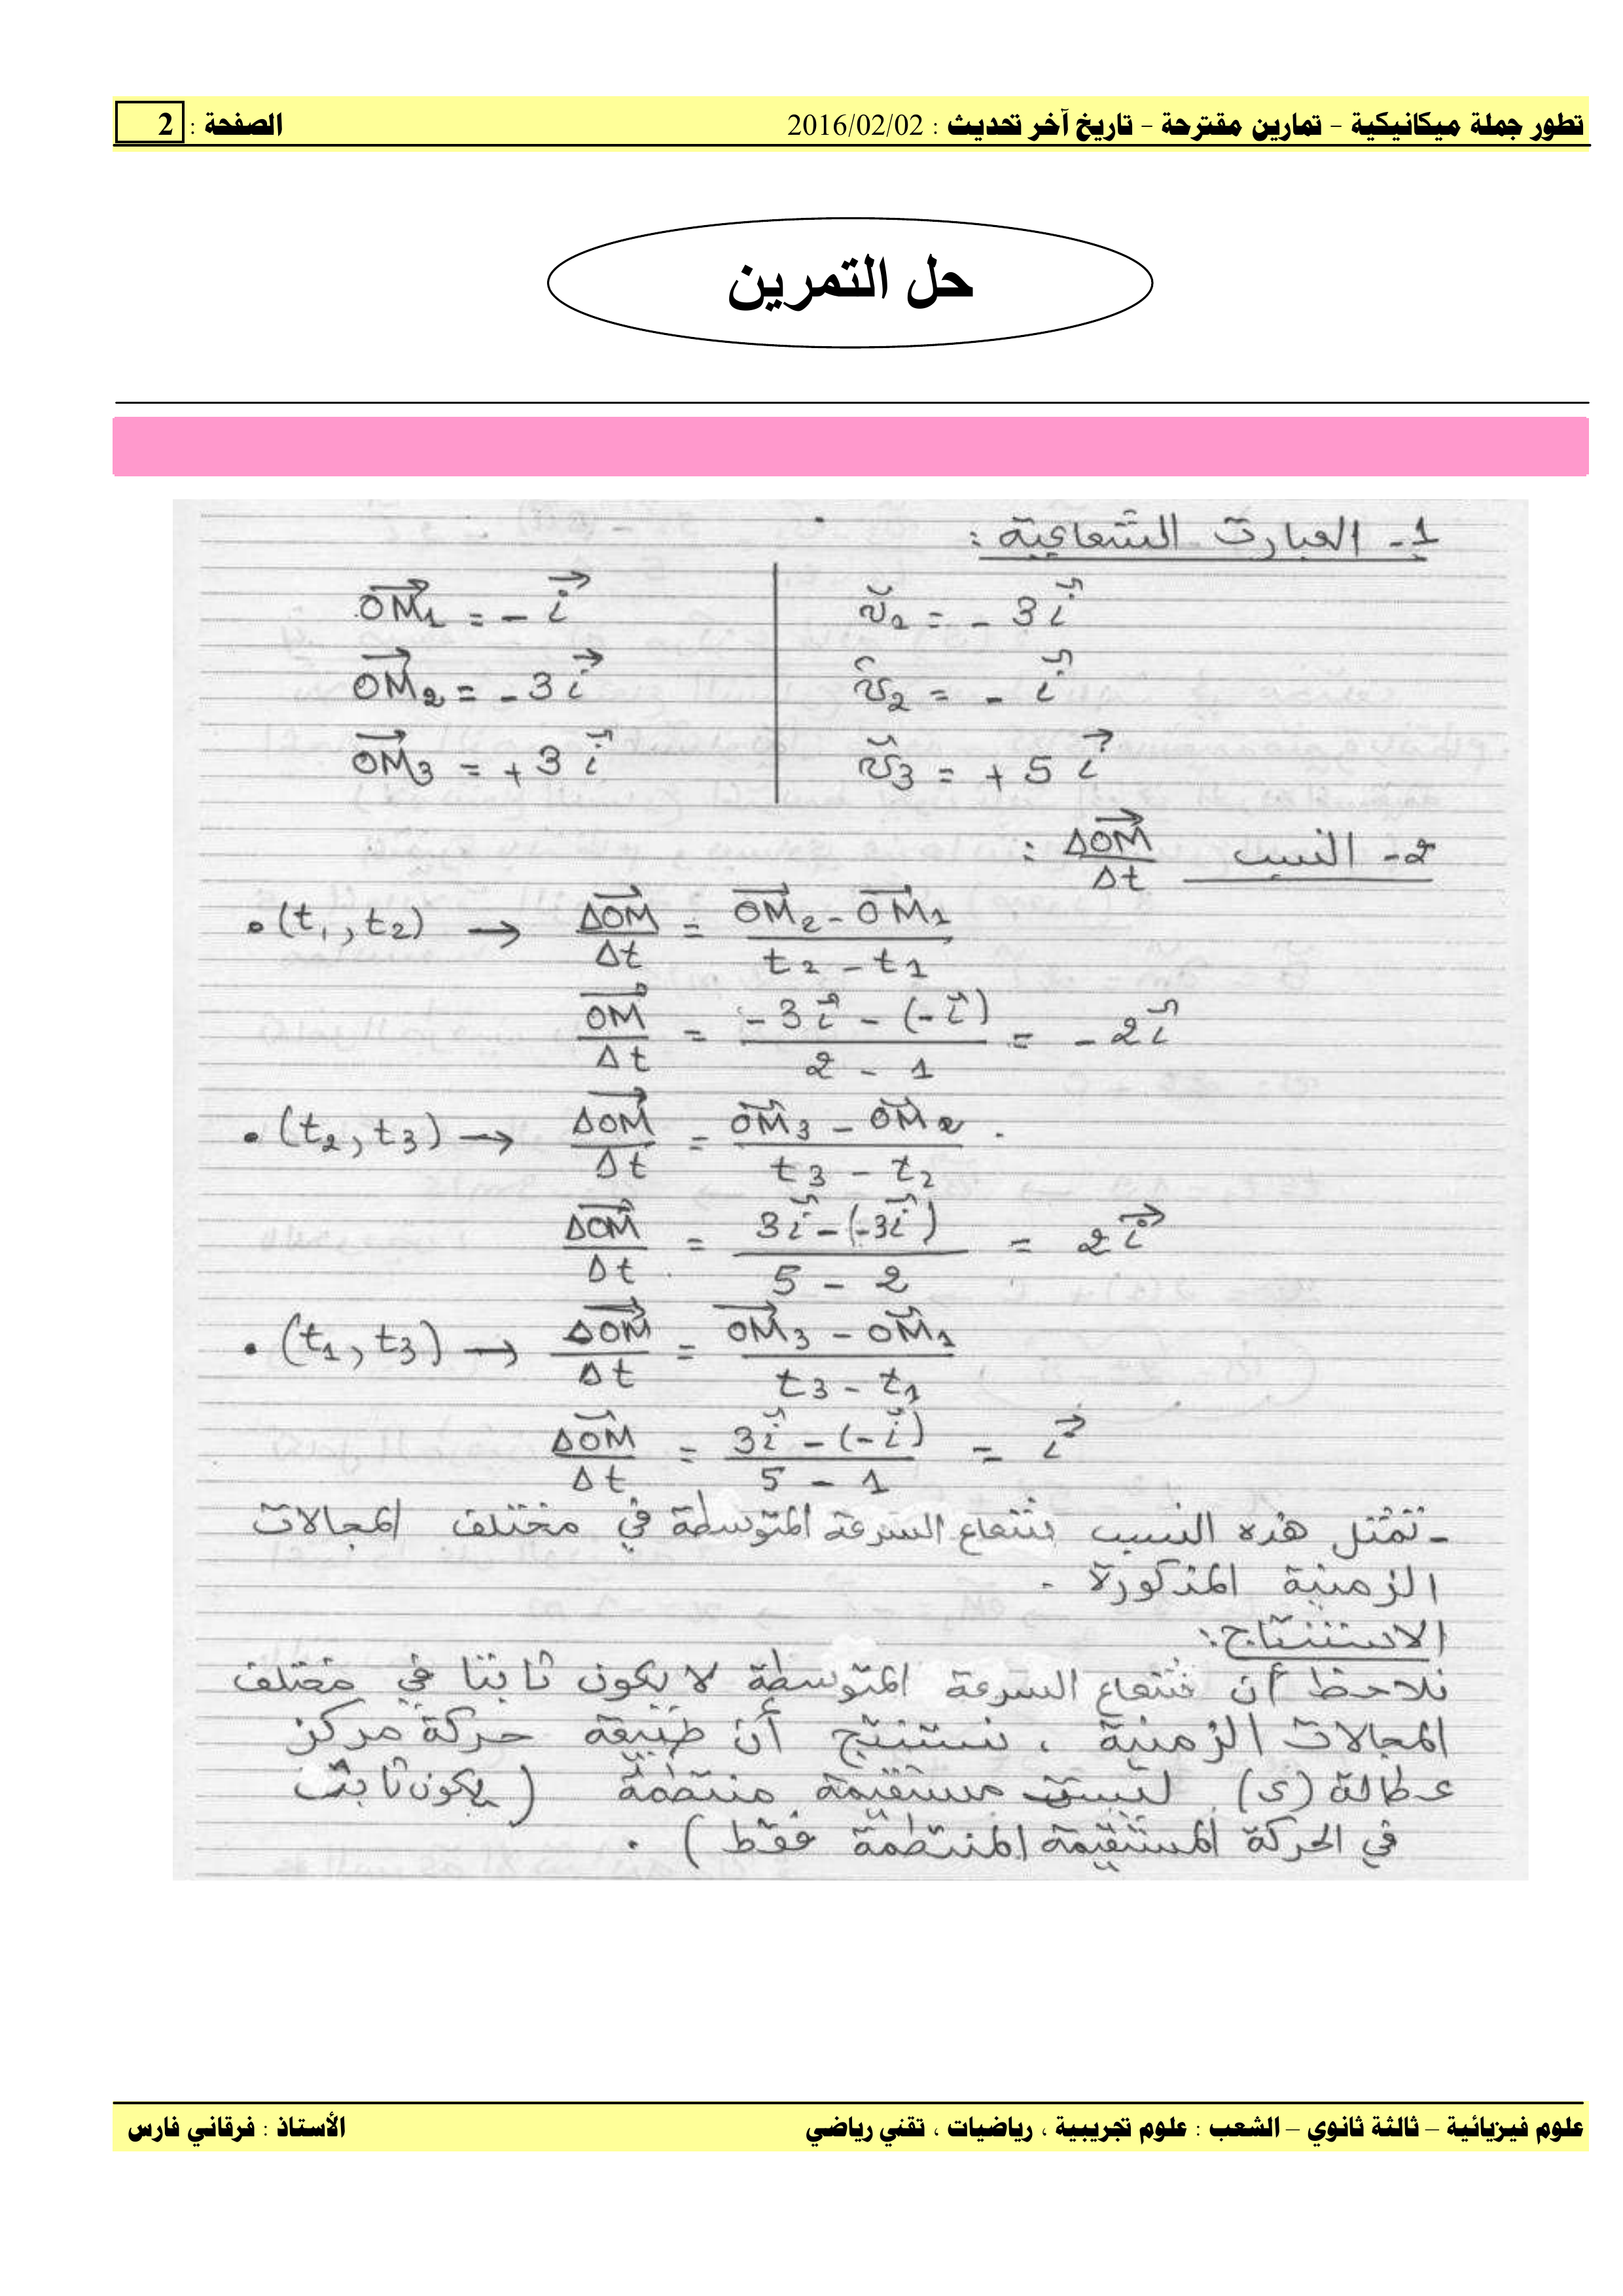 تطور جملة ميكانيكية – تمارين مقترحة – تاريخ آخر تحديث : 2016/02/02 الصفحة : 2
حل التمرين
1- العبارت الشعاعية :
OM₁ = - i
v₂ = - 3 i
OM₂ = - 3 i
v₂ = - i
OM₃ = + 3 i
v₃ = + 5 i
2- النسب ΔOM/Δt :
• (t₁, t₂) → ΔOM/Δt = (OM₂ - OM₁)/(t₂ - t₁)
OM/Δt = (-3i - (-i))/(2 - 1) = - 2i
• (t₂, t₃) → ΔOM/Δt = (OM₃ - OM₂)/(t₃ - t₂) .
ΔOM/Δt = (3i - (-3i))/(5 - 2) = 2 i
• (t₁, t₃) → ΔOM/Δt = (OM₃ - OM₁)/(t₃ - t₁)
ΔOM/Δt = (3i - (-i))/(5 - 1) = i
- تمثل هذه النسب شعاع السرعة المتوسطة في مختلف المجالات
الزمنية المذكورة .
الاستنتاج :
نلاحظ أن شعاع السرعة المتوسطة لا يكون ثابتا في مختلف
المجالات الزمنية ، نستنتج أن طبيعة حركة مركز
عطالة (S) ليست مستقيمة منتظمة ( يكون ثابت
في الحركة المستقيمة المنتظمة فقط ) .
علوم فيزيائية – ثالثة ثانوي – الشعب : علوم تجريبية ، رياضيات ، تقني رياضي الأستاذ : فرقاني فارس